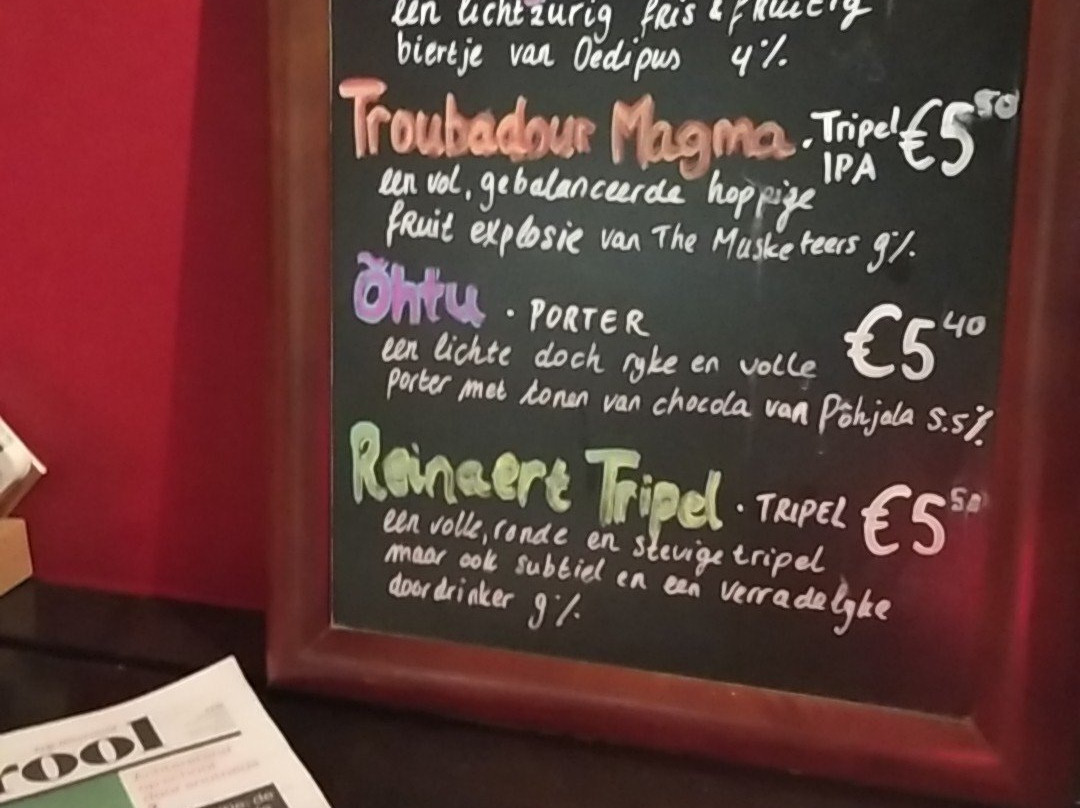 een lichtzurig fris & fruitig
biertje van Oedipus 4%
Troubadour Magma . Tripel IPA €5 50
een vol, gebalanceerde hoppige
fruit explosie van The Musketeers 9%
Õhtu . PORTER €5 40
een lichte doch ryke en volle
porter met tonen van chocola van Põhjala 5.5%
Reinaert Tripel . TRIPEL €5 50
een volle, ronde en stevige tripel
maar ook subtiel en een verradelyke
doordrinker 9%
rool